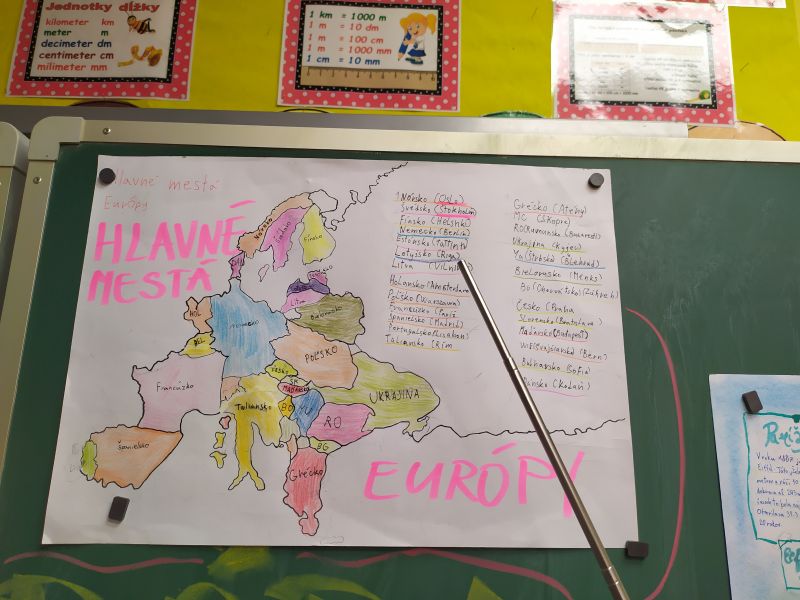 Jednotky dĺžky
kilometer km
meter m
decimeter dm
centimeter cm
milimeter mm
1 km = 1000 m
1 m = 10 dm
1 m = 100 cm
1 m = 1000 mm
1 cm = 10 mm
Hlavné mestá
Európy
HLAVNÉ
MESTÁ
EURÓPY
Nórsko
Fínsko
HOL
BEL
Nemecko
Litva
Bielorusko
POĽSKO
Česko
SR
MAĎARSKO
UKRAJINA
Francúzsko
Taliansko
BO
YU
RO
BG
Španielsko
Grécko
Nórsko (Oslo)
Švédsko (Štokholm)
Fínsko (Helsinki)
Nemecko (Berlín)
Estónsko (Tallinn)
Lotyšsko (Riga)
Litva (Vilnius
Holansko (Amsterdam)
Poľsko (Warszawa)
Francúzko (Paríž)
Španielsko (Madrid)
Portugalsko (Lisabon)
Taliansko (Rím
Grécko (Atény)
MC (Skopje)
RO (Rumunsko (Bukurešť)
Ukrajina (Kyjev)
Yu (Srbsko (Belehrad)
Bielorusko (Minks)
Bo (Chorvátsko) (Záhreb)
Česko (Praha
Slovensko (Bratislava)
Maďarsko (Budapešť)
(Bern)
Bulharsko (Sofia)
Dánsko (Kodaň)